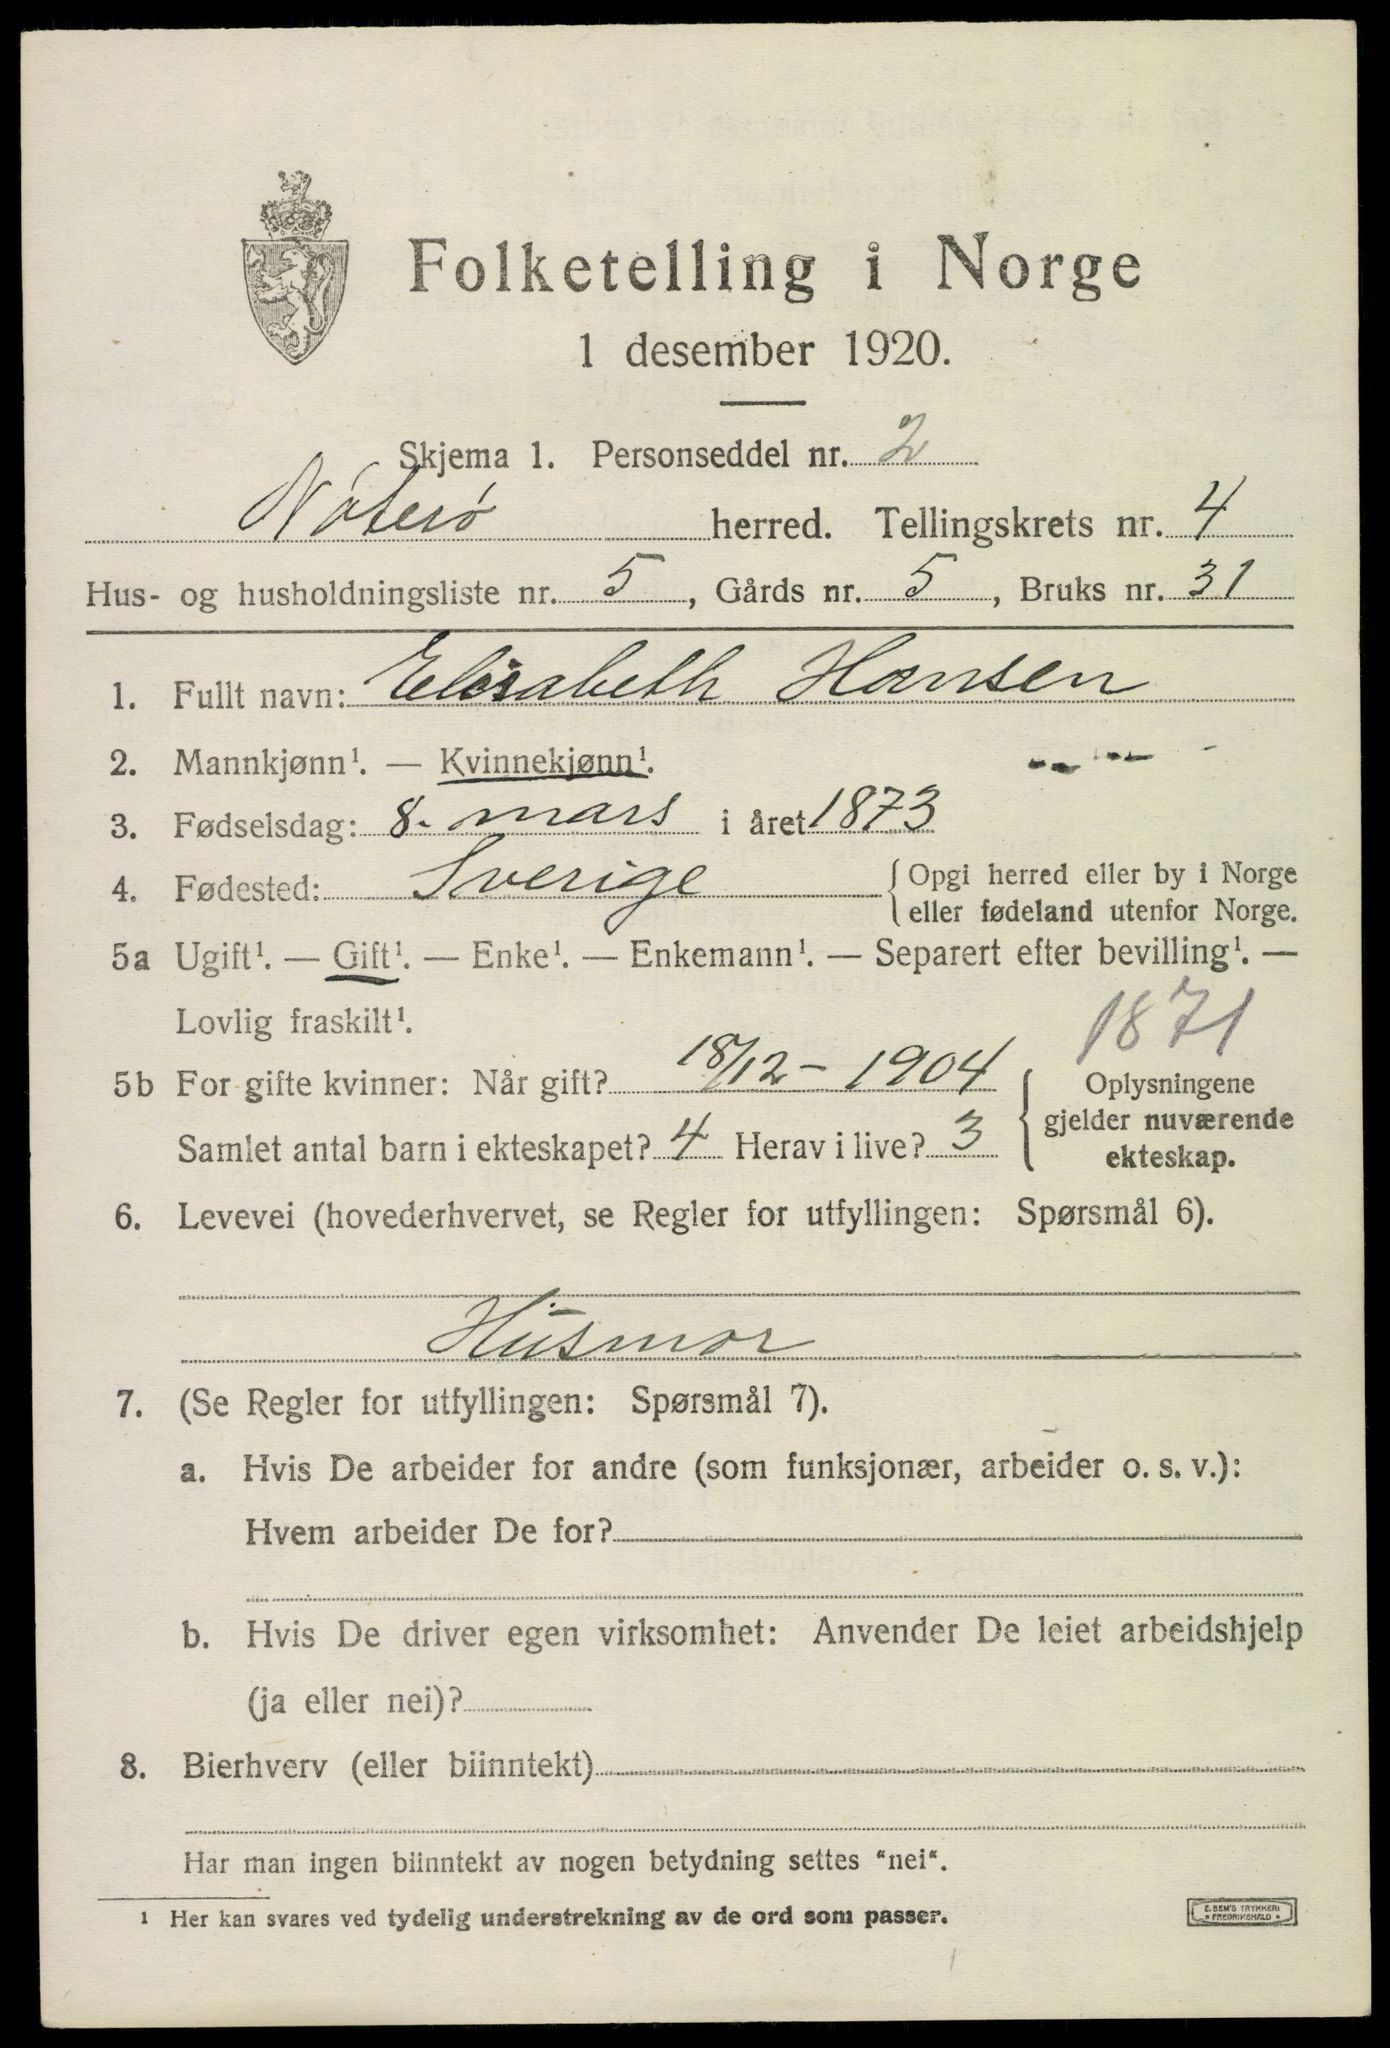 Folketelling i Norge
1 desember 1920.
Skjema 1. Personseddel nr. 2
Nøterø herred. Tellingskrets nr. 4
Hus- og husholdningsliste nr. 5, Gårds nr. 5, Bruks nr. 31
1. Fullt navn: Elisabeth Hansen
2. Mannkjønn¹. — Kvinnekjønn¹.
3. Fødselsdag: 8. mars i året 1873
4. Fødested: Sverige { Opgi herred eller by i Norge
eller fødeland utenfor Norge.
5a Ugift¹. — Gift¹. — Enke¹. — Enkemann¹. — Separert efter bevilling¹. —
Lovlig fraskilt¹.
1871
5b For gifte kvinner: Når gift? 18/12 – 1904
Samlet antal barn i ekteskapet? 4 Herav i live? 3
{ Oplysningene
gjelder nuværende
ekteskap.
6. Levevei (hovederhvervet, se Regler for utfyllingen: Spørsmål 6).
Husmor
7. (Se Regler for utfyllingen: Spørsmål 7).
a. Hvis De arbeider for andre (som funksjonær, arbeider o. s. v.):
Hvem arbeider De for?
b. Hvis De driver egen virksomhet: Anvender De leiet arbeidshjelp
(ja eller nei)?
8. Bierhverv (eller biinntekt)
Har man ingen biinntekt av nogen betydning settes "nei".
¹ Her kan svares ved tydelig understrekning av de ord som passer.
E. SEM'S TRYKKERI
• FREDRIKSHALD •